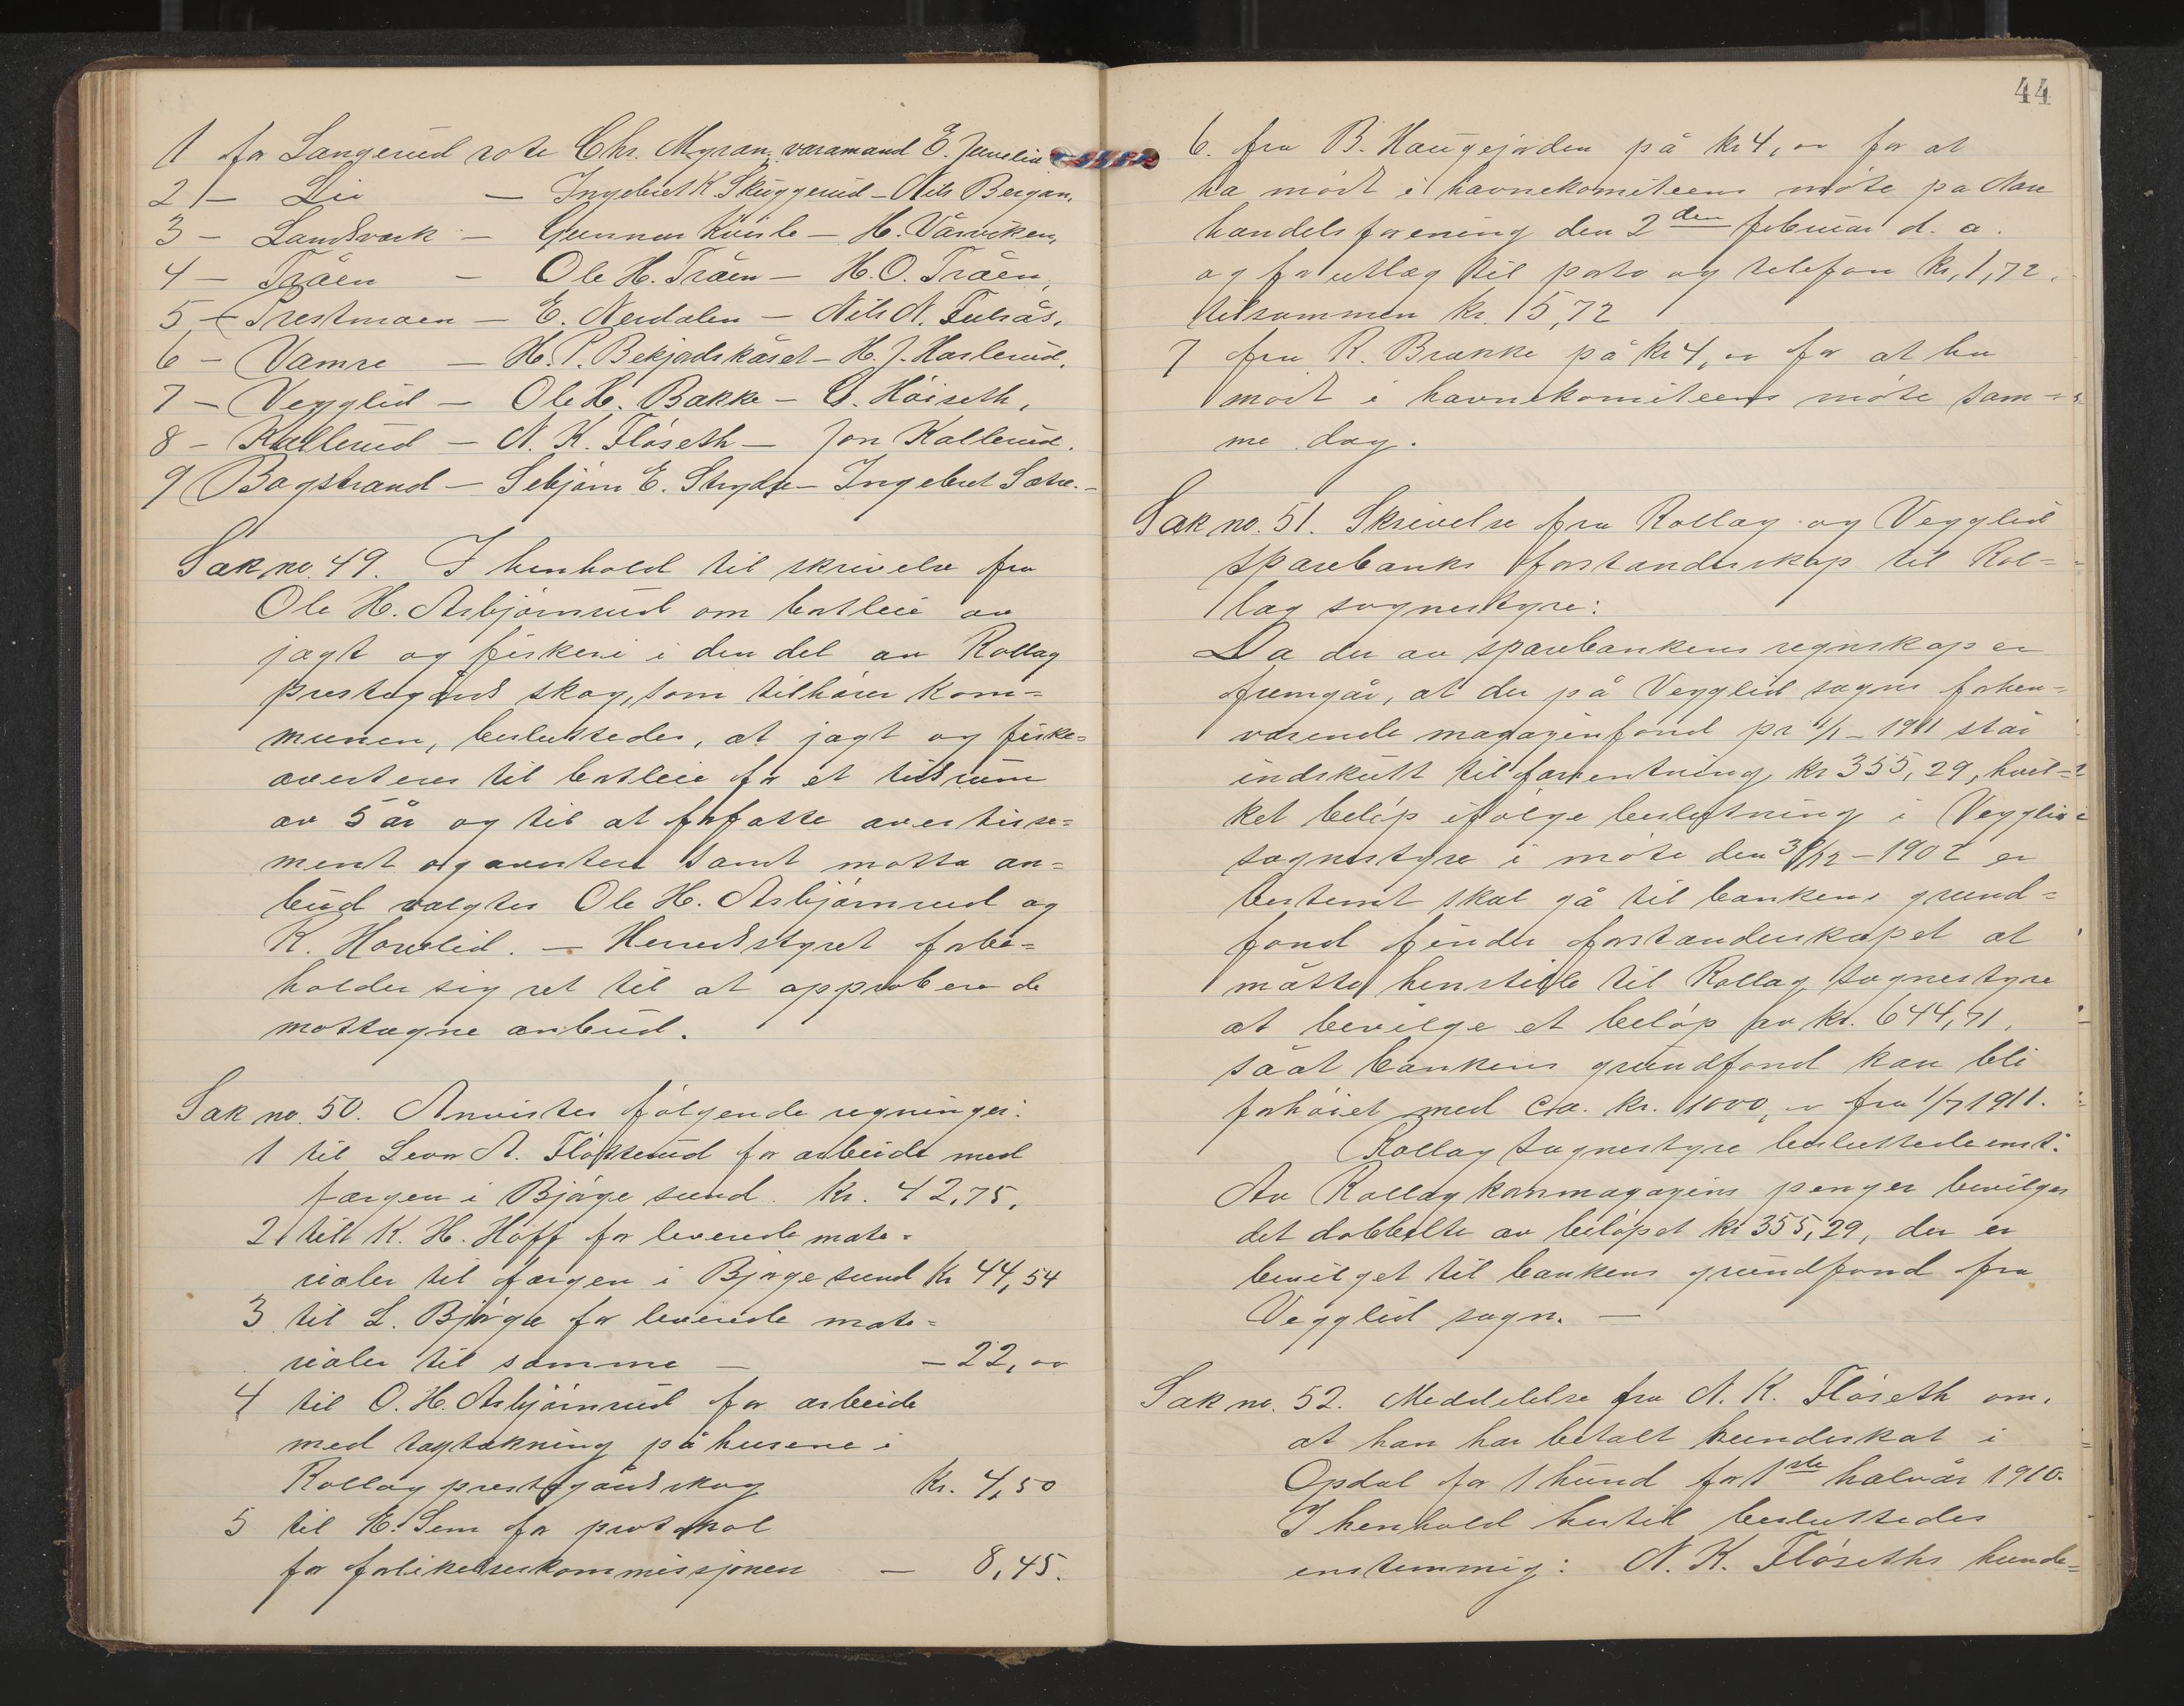 1 for Langerud rote Chr. Myran, varamand E. Juvelie
2 – Lie – Ingebret K. Skuggerud – Nils Bergan,
3 – Landsverk – Gunnar Kvisle – H. Vårviken,
4 – Tråen – Ole H. Tråen – H. O. Tråen,
5 – Prestmoen – E. Nerdalen – Nils N. Fulsås,
6 – Vamre – H. P. Bekjordskåset – H. J. Haslerud,
7 – Vegglid – Ole H. Bakke – G. Höiseth,
8 – Kallerud – N. K. Flöseth – Jon Kallerud.
9 Bogstrand – Sebjörn E. Stryde – Ingebret Sætre. –
Sak no. 49. I henhold til skrivelse fra
Ole H. Asbjörnrud om bortleie av
jagt og fiskeri i den del av Rollag
prestegårds skog, som tilhörer kom=
munen, besluttedes, at jagt og fiske=
averteres til bortleie for et tidsrum
av 5 år og til at forfatte avertisse=
ment og avertere samt motta an=
bud valgtes Ole H. Asbjörnrud og
K. Hovelid. – Herredstyret forbe=
holder sig ret til at approbere de
mottagne anbud.
Sak no. 50. Anvistes fölgende regninger:
1 til Levor A. Flåtterud for arbeide med
færgen i Bjørge sund. Kr. 42,75,
2 till K. H. Hoff for leverede mate=
rialer til færgen i Bjørge sund Kr 44,54
3 til L. Björge for leverede mate=
rialer til samme – – 22,00
4 til O. H. Asbjörnrud for arbeide
med tagtækning på husene i
Rollag prestegårdsskog Kr. 4,50
5 til E. Sem for protokol
for forlikelseskommissjonen – 8,45.
44
6. fra B. Haugejorden på kr 4,00 for at
ha mödt i havnekomiteens möte på Nore
handelsforening den 2den februar d. a.
og for utlæg til porto og telefon kr. 1,72,
tilsammen kr. 5,72
7 fra K. Brække på kr 4,00 for at ha
mödt i havnekomiteens möte sam=
me dag.
Sak no. 51. Skrivelse fra Rollag og Vegglid
sparebanks forstanderskap til Rol=
lag sognestyre:
Da der av sparebankens regnskap er
fremgår, at der på Vegglid sogns forhen=
værende magazinfond pr 1/1 – 1911 står
indskutt til forrentning kr 355,29, hvil=
ket belöp ifölge beslutning i Vegglid
sognestyre i möte den 31/12 – 1907 er
bestemt skal gå til bankens grund=
fond finder forstanderskapet at
måtte henstille til Rollag sognestyre
at bevilge et belöp av kr. 644,71,
såat bankens grundfond kan bli
forhöiet med cta. kr. 1000,00 fra 1/7 1911.
Rollag sognestyre besluttede enst:
Av Rollag kornmagazins penger bevilges
det dobbelte av belöpet kr 355,29, der er
bevilget til bankens grundfond fra
Vegglid sogn. –
Sak no. 52. Meddelelse fra N. K. Flöseth om,
at han har betalt hundeskat i
Opdal for 1 hund for 1ste halvår 1910.
I henhold hertil besluttedes
enstemmig: N. K. Flöseths hunde=